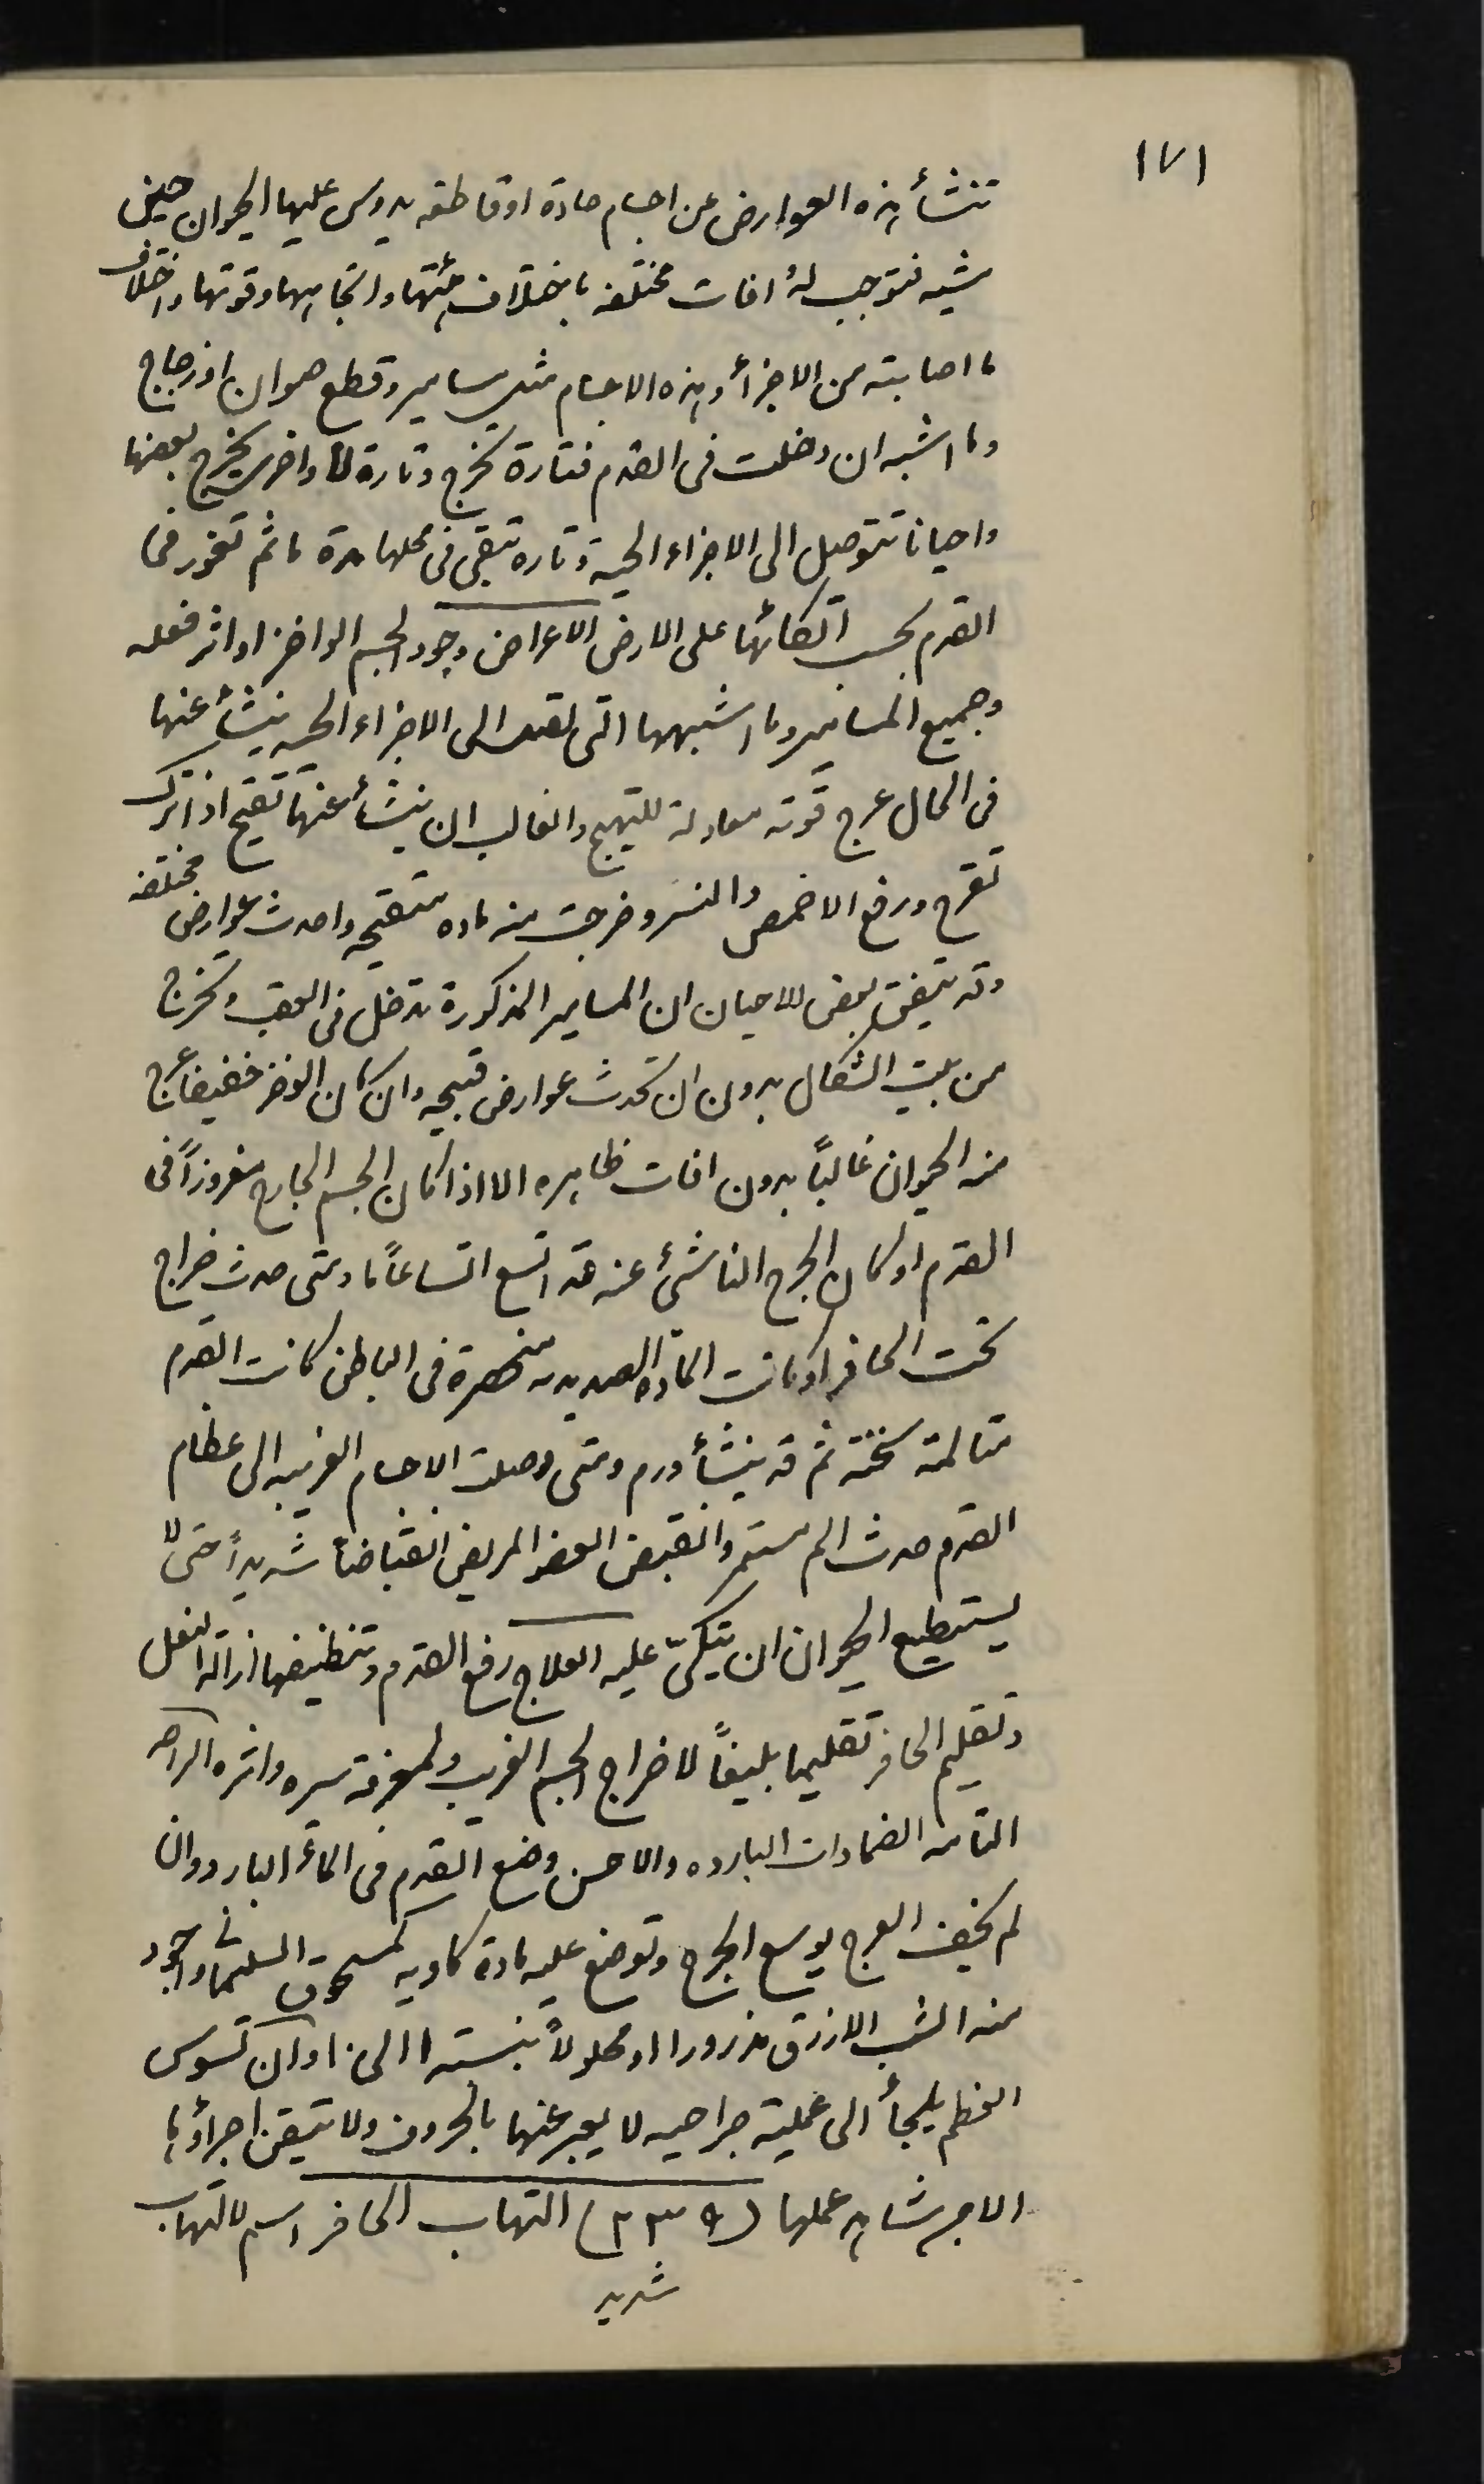 ١٧١
تنشأ هذه العوارض عن اجسام حادة او قاطعه يدوس عليها الحيوان حين
مشيه فتوجب له افات مختلفه باختلاف هيئتها واتجاهها وقوتها واختلاف
ما اصابته من الاجزأ وهذه الاجسام مثل مسامير وقطع صوان او زجاج
وما اشبه ان دخلت فى القدم فتارة تخرج وتارة لا واخرى يخرج بعضها
واحيانا تتوصل الى الاجزاء الحية وتاره تبقى فى محلها مدة ما ثم تغور فى
القدم بحسب اتكائها على الارض الاعراض وجود الجسم الواخز او اثر فعله
وجميع المسامير وما اشبهها التى تصل الى الاجزاء الحيه ينشأ عنها
فى الحال عرج قوته معادلة للتهيج والغالب ان ينشأ عنها تقيح اذا ترك
تقرح ورفع الاخمص والنسر وخرجت منه ماده متقيحه واحدث عوارض مختلفه
وقد يتفق بعض الاحيان ان المسامير المذكورة تدخل فى العقب وتخرج
من بيت الشكال بدون ان تحدث عوارض قبيحه وان كان الوخز خفيفا عرج
منه الحيوان غالبًا بدون افات ظاهره الا اذا كان الجسم الجارح مغروزًا فى
القدم او كان الجرح الناشئ عنه قد اتسع اتساعًا ما ومتى حدث خراج
تحت الحافر او كانت المادة الصديديه منحصرة فى الباطن كانت القدم
متالمة سخنة ثم قد ينشأ ورم ومتى وصلت الاجسام الغريبه الى عظام
القدم حدث الم مستمر وانقبض العضو المريض انقباضا شديدًا حتى لا
يستطيع الحيوان ان يتكئ عليه العلاج رفع القدم وتنظيفها ازالة النعل
وتقليم الحافر تقليما بليغًا لاخراج الجسم الغريب ولمعرفة سيره واثره الراحه
التامه الضمادات البارده والاحسن وضع القدم فى المأ البارد وان
لم يخف العرج يوسع الجرح وتوضع عليه مادة كاويه كمسحوق السليمانى واجود
منه الشب الازرق مذرورا او محلولًا بنسبة ١ الى ١٠ وان تسوس
العظم يلجأ الى عملية جراحيه لا يعبر عنها بالحروف ولا يتيقن اجراؤها
الا من شاهد عملها (٢٣٩) التهاب الحافر اسم لالتهاب
شديد